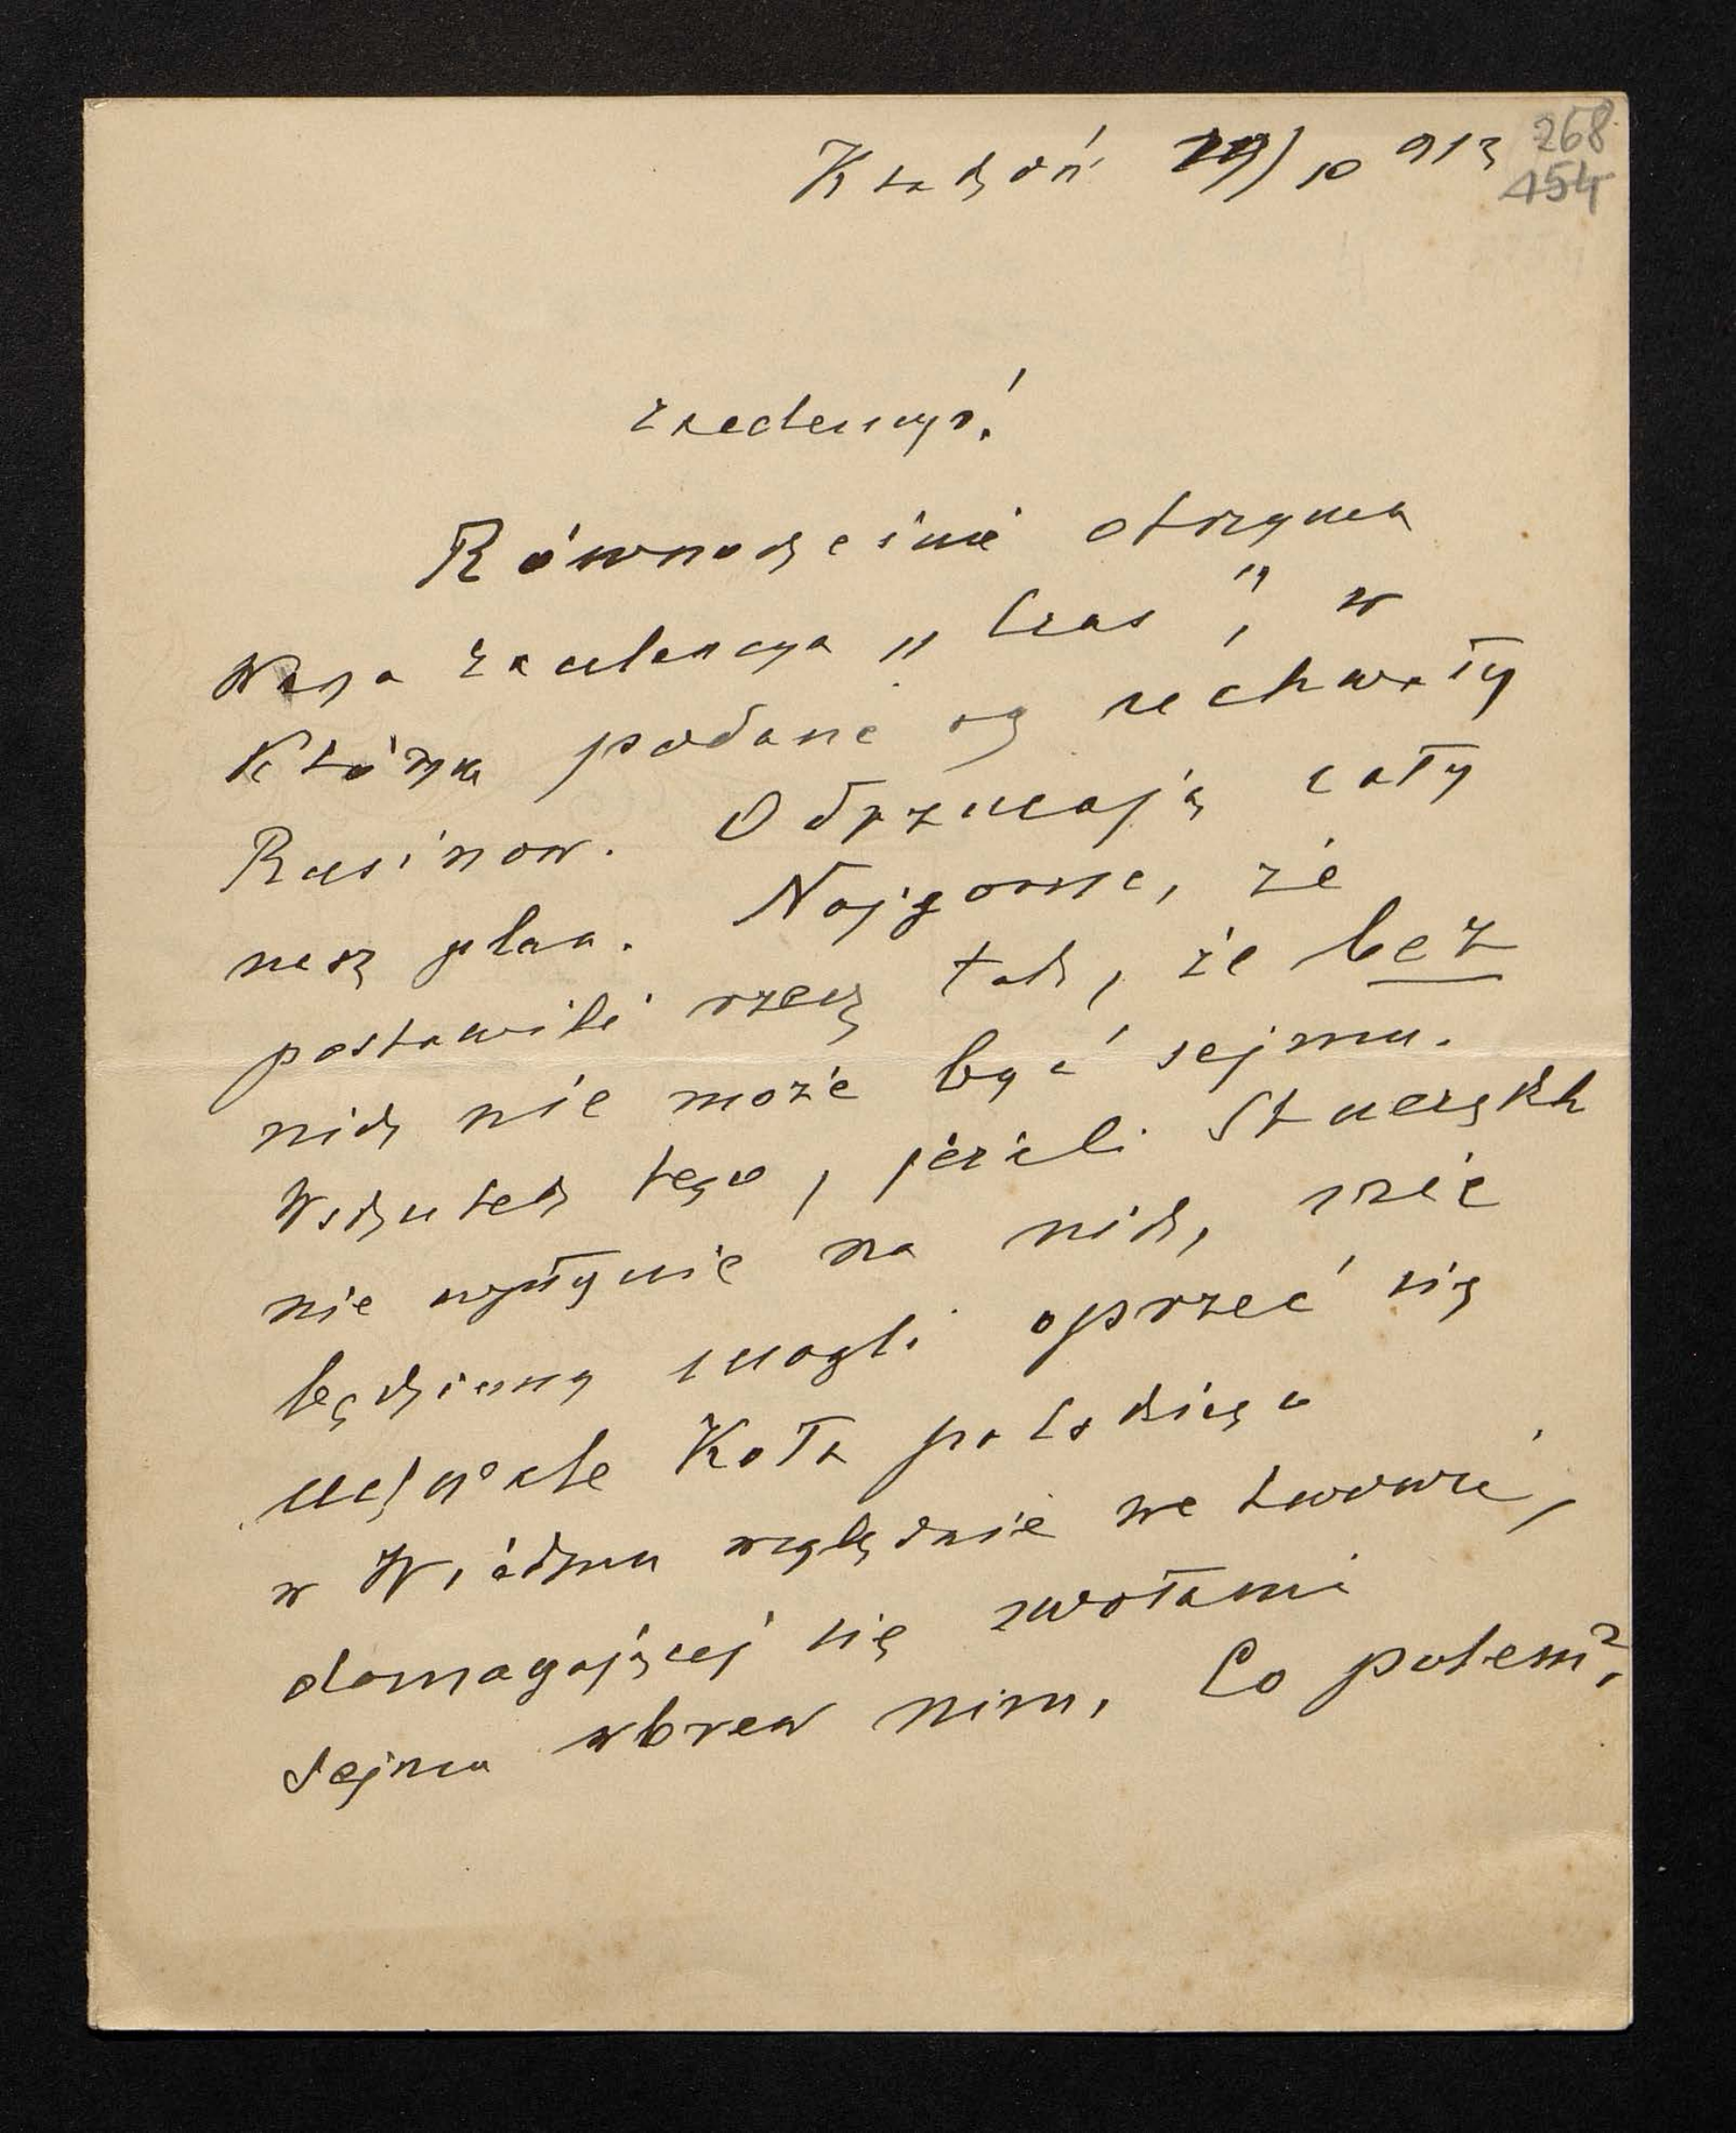 Kraków 29/10 913
268
154
Excelencyo!
Równocześnie otrzyma
Wasza Excelencya „Czas", w
którym podane są uchwały
Rusinow. Odrzucają cały
nasz plan. Najgorsze, że
postawili rzecz tak, że bez
nich nie może być sejmu.
Wskutek tego, jeżeli Stuergkh
nie wpłynie na nich, nie
będziemy mogli oprzeć się
uchwale Koła polskiego
w Wiedniu względnie we Lwowie,
domagającej się zwołania
Sejmu wbrew nim. Co potem?